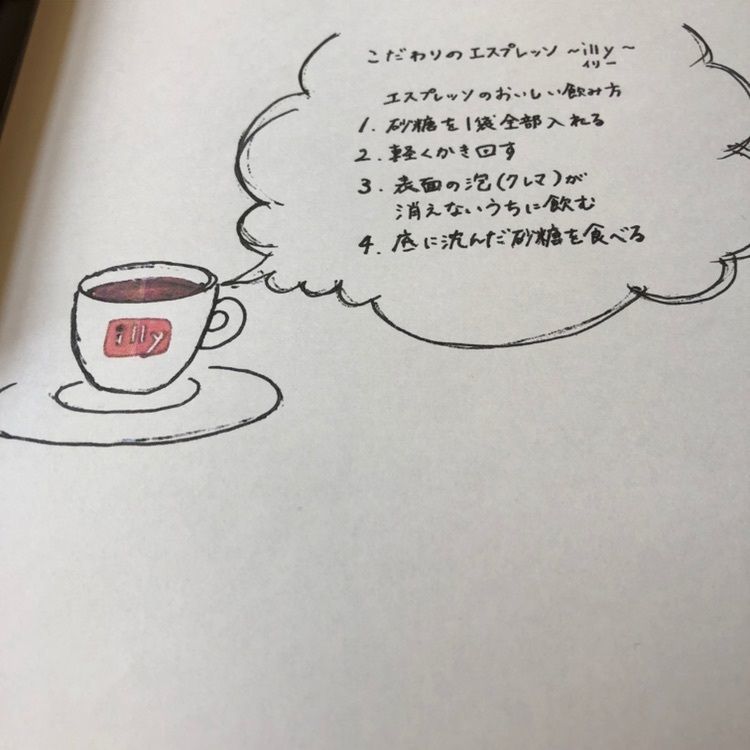 こだわりのエスプレッソ ~illy~
イリー
エスプレッソのおいしい飲み方
1. 砂糖を1袋全部入れる
2. 軽くかき回す
3. 表面の泡(クレマ)が
消えないうちに飲む
4. 底に沈んだ砂糖を食べる
illy